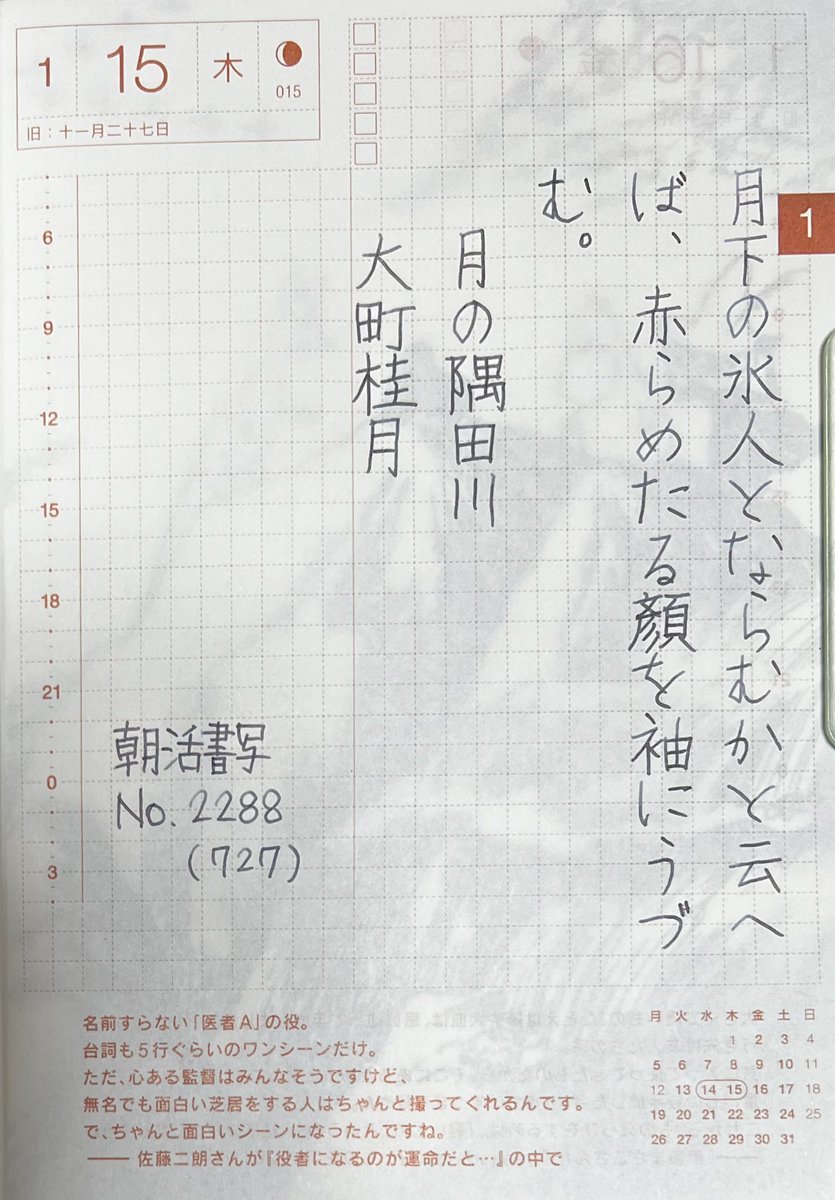 1 15 木
015
旧：十一月二十七日
1
月下の氷人とならむかと云へ
ば、赤らめたる顔を袖にうづ
む。
月の隅田川
大町桂月
6
9
12
15
18
21
0
3
朝活書写
No. 2288
(727)
名前すらない「医者A」の役。
台詞も5行ぐらいのワンシーンだけ。
ただ、心ある監督はみんなそうですけど、
無名でも面白い芝居をする人はちゃんと撮ってくれるんです。
で、ちゃんと面白いシーンになったんですね。
―― 佐藤二朗さんが『役者になるのが運命だと…』の中で
月 火 水 木 金 土 日
1 2 3 4
5 6 7 8 9 10 11
12 13 14 15 16 17 18
19 20 21 22 23 24 25
26 27 28 29 30 31